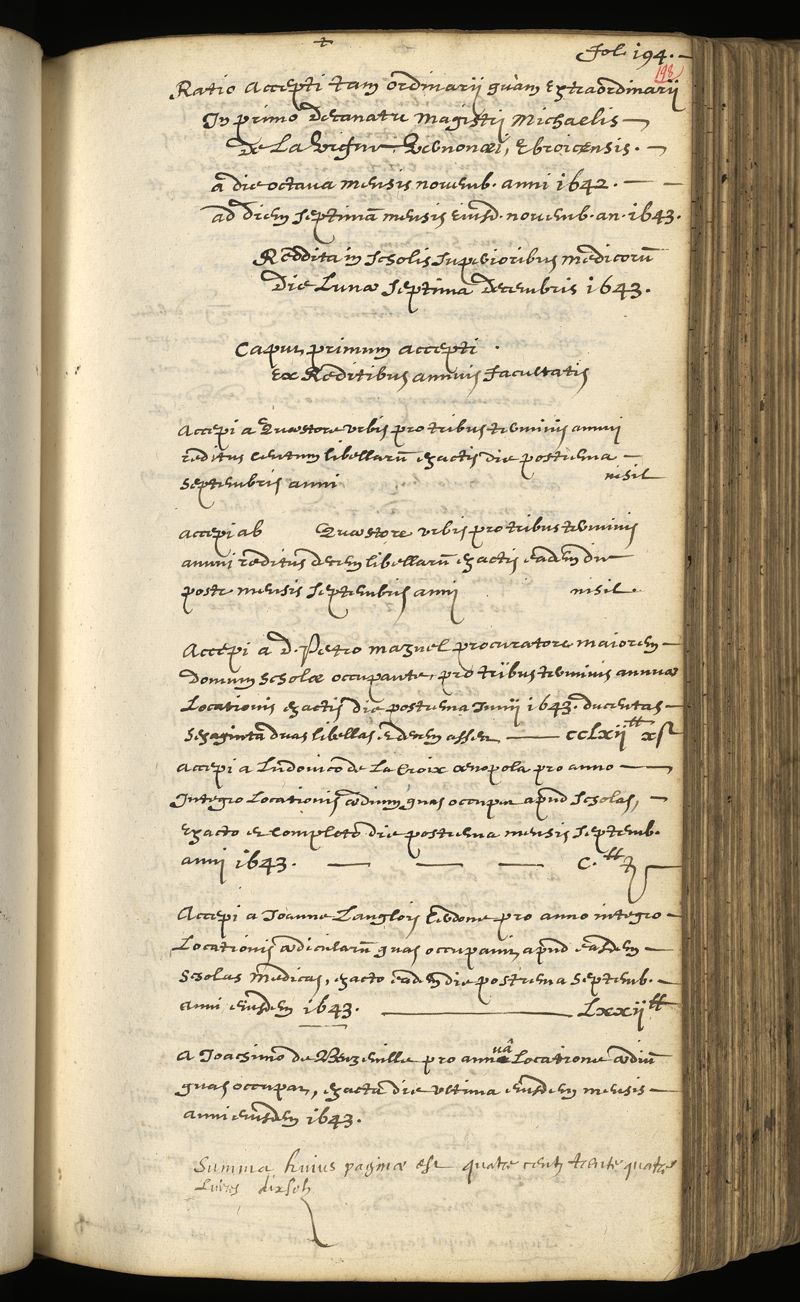 +
Fol. 194.
198
Ratio Accepti tam ordinarii quàm Extraordinarii
In primo decanatu magistri Michaelis
de La Vigne, Vernonæi, Ebroicensis.
a die octava mensis novemb. anni 1642.
ad diem septimā mensis eiusd. novemb. an. 1643.
Reddita in scholis superioribus medicorū
die Lunæ septima decembris 1643.
Caput primum accepti
ex Reditibus annuis facultatis
Accepi a Quæstore urbis pro tribus terminis annui
reditus centum libellarū exactis die postrema
septembris anni nihil
accepi ab Quæstore urbis pro tribus terminis
annui reditus decem libellarū exactis eadem die
postr. mensis septembris anni nihil.
Accepi a D. Petro mazuel procuratore maiorem
domum scholæ occupante, pro tribus terminis annuæ
Locationis exactis die postrema Junii 1643. ducentas
sexaginta duas libellas et decem asses cclxii tt xs
accepi a Ludovico de La Croix œnopola pro anno
integro Locationis ædium quas occupat apud scholas,
exacto et completo die postrema mensis septemb.
anni 1643. C. tt
Accepi a Joanne Langlois Cerdone pro anno integro
Locationis ædicularū quas occupavit apud easdem
scholas medicas, exacto eadem die postrema septemb.
anni eiusdem 1643. Lxxii tt
a Joachimo de Bezeville pro annuâ Locatione ædiū
quas occupat, exacta die ultima eiusdem mensis
anni eiusdem 1643.
Summa huius paginæ est quatre cents trente quatre
Livres dix solz